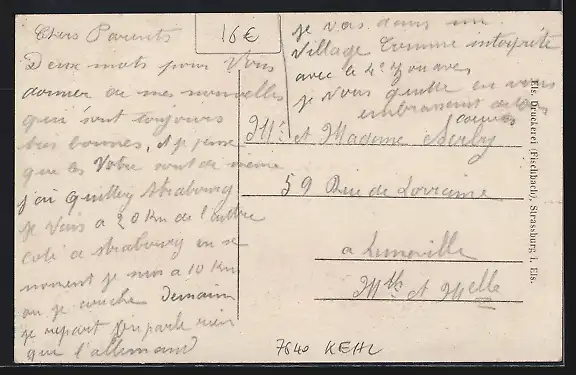 Chers Parents
Deux mots pour Vous
donner de mes nouvelles
qui sont toujours
tres bonnes, et je pense
que les Votre sont de meme
j'ai quittez Strasbourg
je Vais a 20 Km de l'autre
coté de Strasbourg en se
moment je suis a 10 Km
ou je couche Demain
je repart on parle rien
que l'allemand
16€
je vas dans un
Village Comme interprete
avec le 4e Zouaves
je Vous quitte en vous
embrassent de tous
coeurs
Mr et Madame
59 Rue de Lorraine
a Luneville
Mth et Melle
7640 KEHL
Els. Druckerei (Fischbach), Strassburg i. Els.